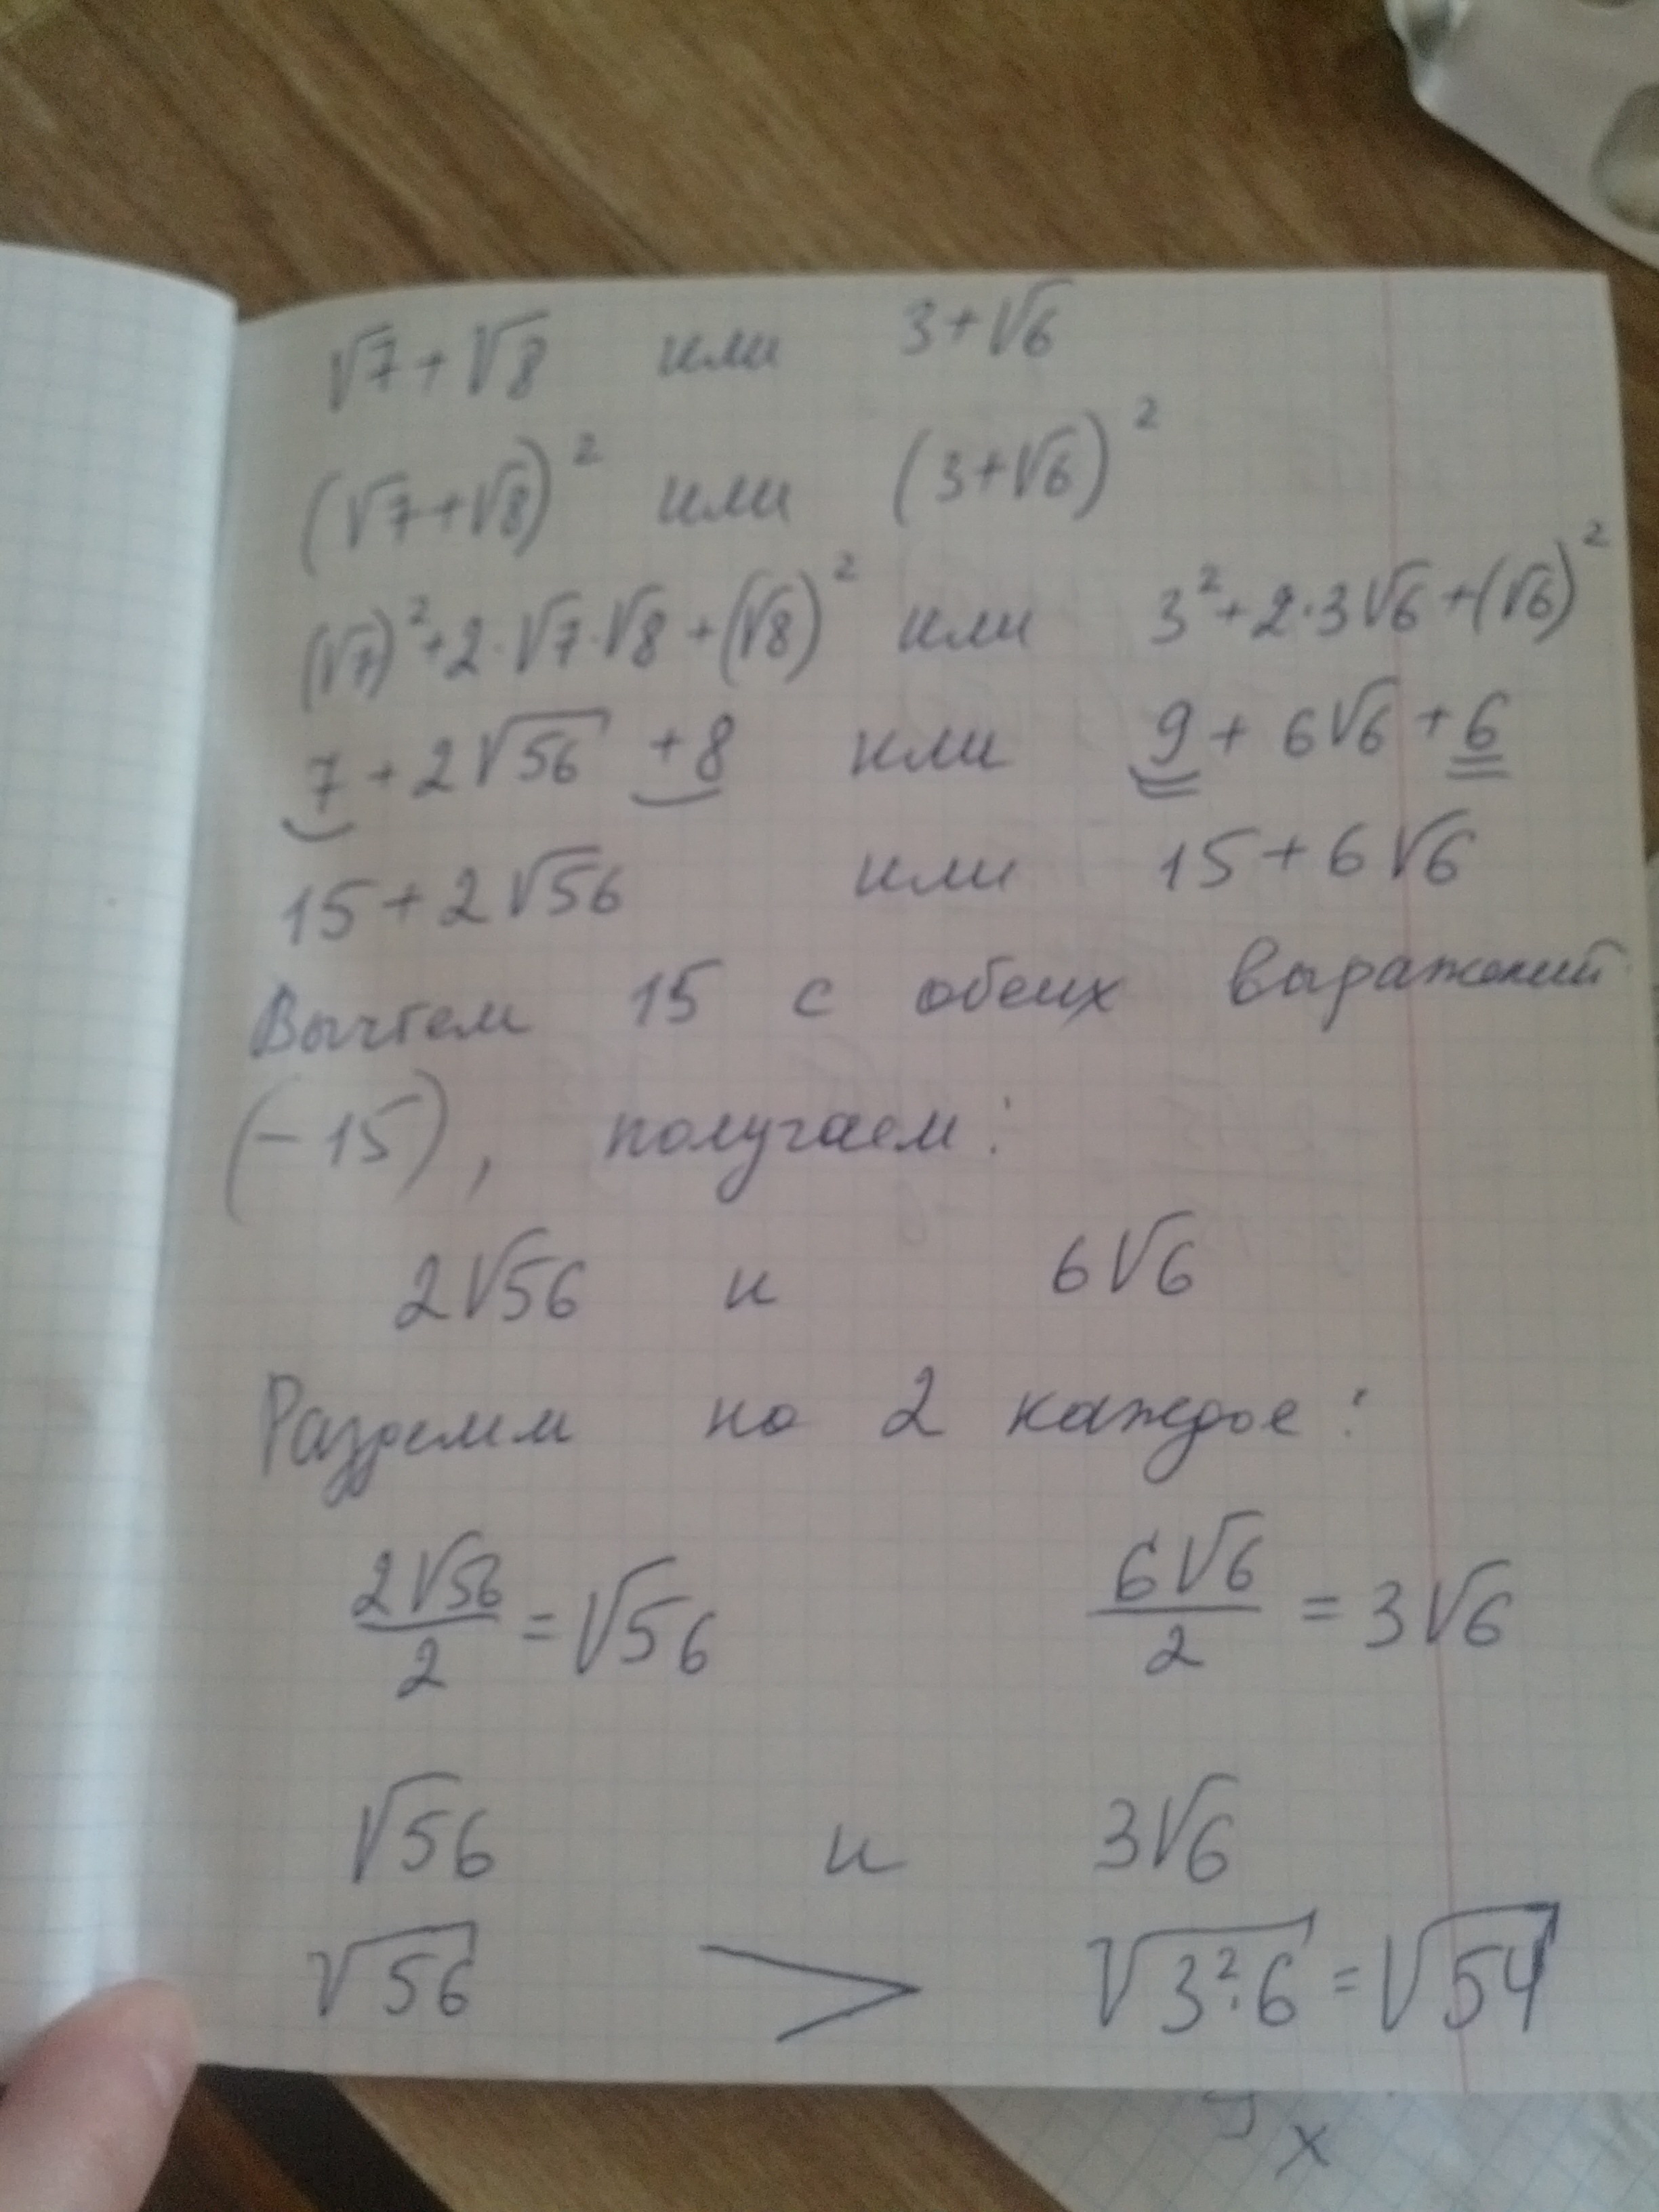 √7 + √8 или 3 + √6
(√7 + √8)² или (3 + √6)²
(√7)² + 2·√7·√8 + (√8)² или 3² + 2·3√6 + (√6)²
7 + 2√56 + 8 или 9 + 6√6 + 6
15 + 2√56 или 15 + 6√6
Вычтем 15 с обеих выражений
(-15), получаем:
2√56 и 6√6
Разделим на 2 каждое:
2√56/2 = √56 6√6/2 = 3√6
√56 и 3√6
√56 > √3²·6 = √54
x